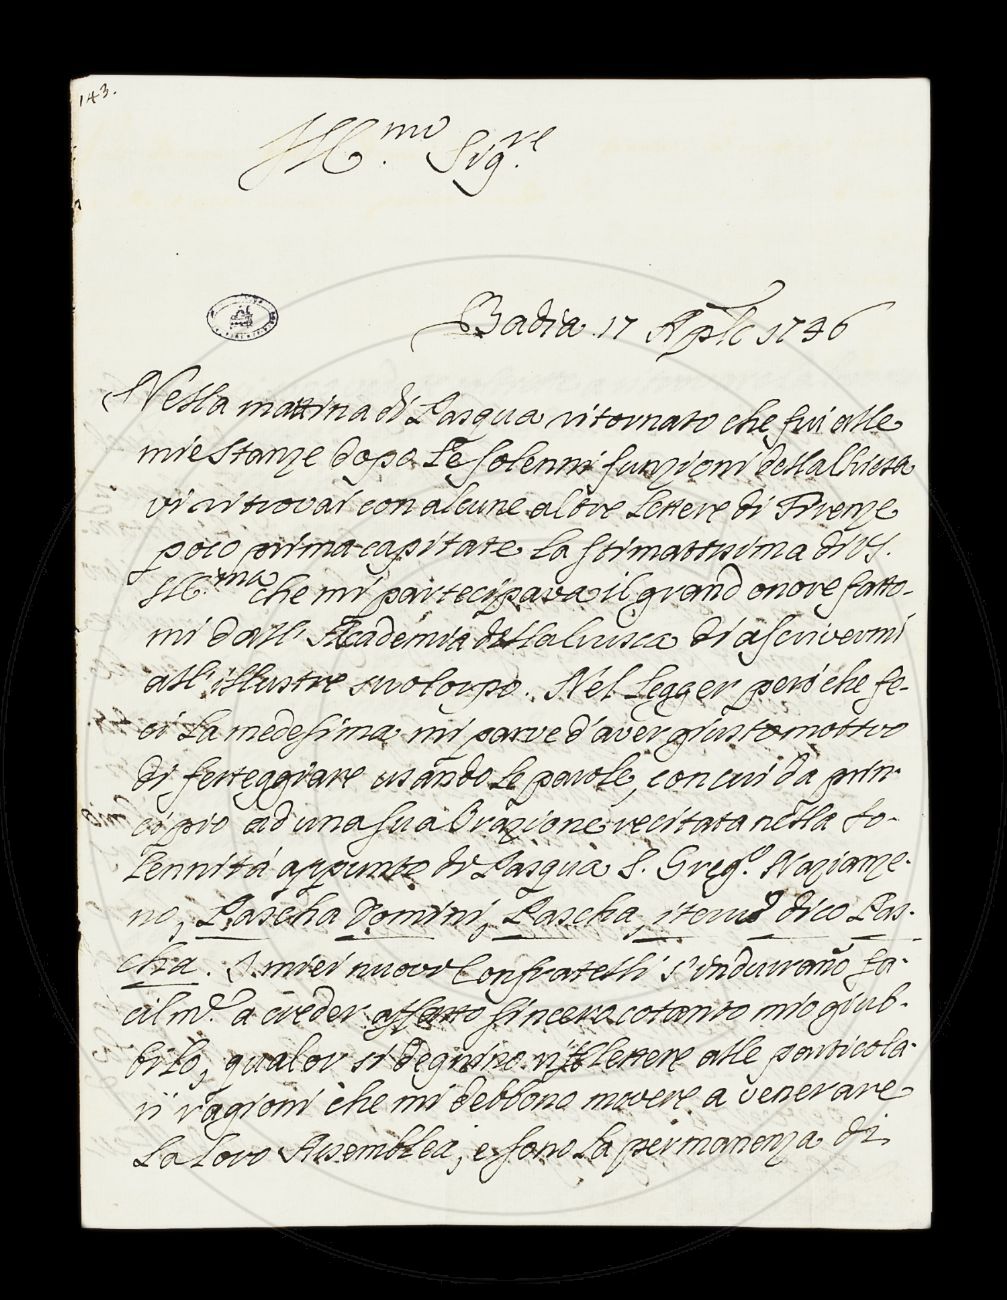 143.
Ill.mo Sig.re
Badia 17 Aple 1746
Nella mattina di Pasqua ritornato che fui alle
mie Stanze dopo le solenni funzioni della Chiesa
vi ritrovai con alcune altre Lettere di Firenze
poco prima capitate la stimatissima di VS.
Ill.ma che mi partecipava il grand onore fatto-
mi dall' Academia della Crusca di ascrivermi
all'illustre suo Corpo. Nel Legger però che fe-
ci la medesima mi parve d'aver giusto motivo
di festeggiare usando le parole, con cui da prin-
cipio ad una sua Orazione recitata nella so-
lennità appunto di Pasqua S. Greg.o Nazianze-
no, Pascha Domini, Pascha, iterum dico Pas-
cha. I miei nuovi Confratelli s'indurano fa-
cilm.e a creder affatto sincero cotanto mio giub-
bilo, qualor si degnino riflettere alle particola-
ri ragioni che mi debbono movere a venerare
la loro Assemblea, e sono la permanenza di